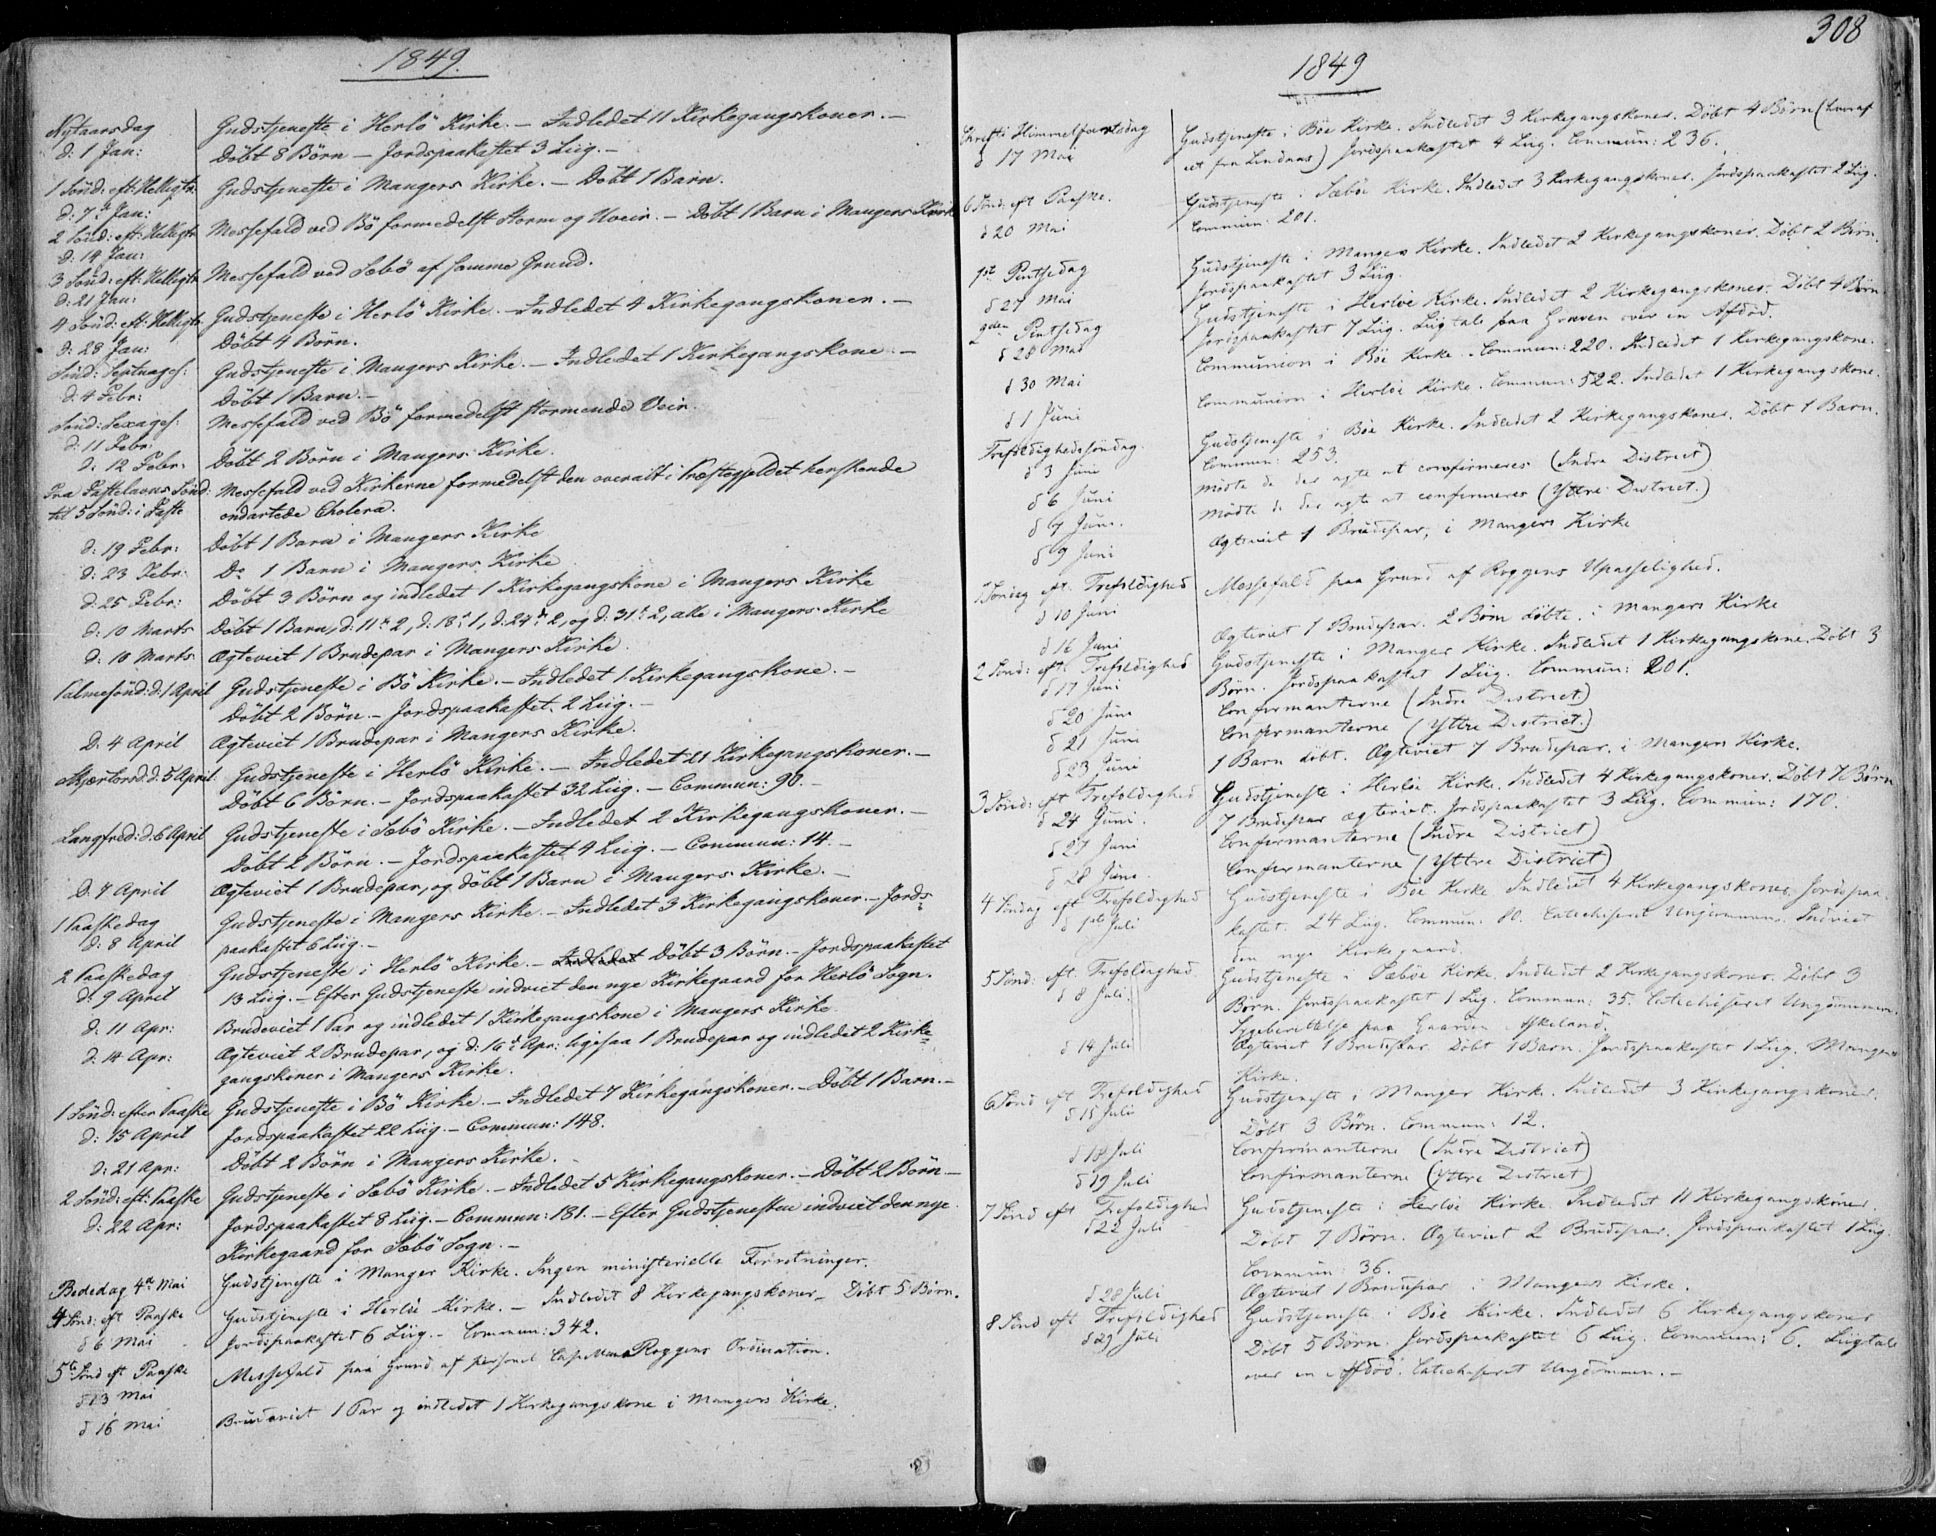 1849.
Nÿtaarsdag Gudstjeneste i Herlö Kirke. – Indledet 11 Kirkegangskoner. –
d: 1 Jan: Döbt 8 Börn – Jordspaakastet 3 Liig. –
1 Sönd: eft: Helligtr: Gudstjeneste i Mangers Kirke. – Döbt 1 Barn.
d: 7de Jan:
2 Sönd: eft: Helligtr: Messefald ved Bö formedelst Storm og Uveir. – Döbt 1 Barn i Mangers Kirke
d: 14 Jan:
3 Sönd: eft: Helligtr: Messefald ved Sæbö af samme Grund.
d: 21 Jan:
4 Sönd: eft: Helligtr: Gudstjeneste i Herlö Kirke. – Indledet 4 Kirkegangskoner. –
d: 28 Jan: Döbt 4 Börn.
Sönd: Septuages: Gudstjeneste i Mangers Kirke. – Indledet 1 Kirkegangskone. –
d: 4 Febr: Döbt 1 Barn. –
Sönd: Sexages: Messefald ved Bö formedelst stormende Veir.
d: 11 Febr:
d: 12 Febr: Döbt 2 Börn i Mangers Kirke.
Fra Fastelavns Sönd: Messefald ved Kirkerne formedelst den overalt i Præstegjeldet herskende
til 5 Sönd: i Faste ondartede Cholera.
d: 19 Febr: Döbt 1 Barn i Mangers Kirke
d: 23 Febr: Do 1 Barn i Mangers Kirke
d: 25 Febr: Döbt 3 Börn og indledet 1 Kirkegangskone i Mangers Kirke
d: 10 Marts Döbt 1 Barn, d: 11te 2, d: 18de 1, d: 24de 2, og d: 31te 2, alle i Mangers Kirke
d: 16 Marts Ægteviet 1 Brudepar i Mangers Kirke.
Palmesönd: d: 1 April Gudstjeneste i Bö Kirke. – Indledet 1 Kirkegangskone. –
Döbt 2 Börn. – Jordspaakastet 2 Liig. –
D: 4 April Ægteviet 1 Brudepar i Mangers Kirke.
Skjærtorsd: d: 5 April: Gudstjeneste i Herlö Kirke. – Indledet 21 Kirkegangskoner. –
Döbt 6 Börn. – Jordspaakastet 32 Liig. – Commun: 90. –
Langfred: d: 6 April Gudstjeneste i Sæbö Kirke. – Indledet 2 Kirkegangskoner. –
Döbt 2 Börn. – Jordspaakastet 4 Liig. – Commun: 14. –
D: 7 April Ægteviet 1 Brudepar, og döbt 1 Barn i Mangers Kirke. –
1 Paaskedag Gudstjeneste i Mangers Kirke. – Indledet 3 Kirkegangskoner. – Jords-
d: 8 April paakastet 6 Liig. –
2 Paaskedag Gudstjeneste i Herlö Kirke. – Indledet Döbt 3 Börn. – Jordspaakastet
d: 9 April 13 Liig. – Efter Gudstjeneste indviet den nye Kirkegaard for Herlö Sogn.
d: 11 Apr: Brudeviet 1 Par og indledet 1 Kirkegangskone i Mangers Kirke
d: 14 Apr: Ægteviet 2 Brudepar, og d: 16de Apr: ligesaa 1 Brudepar og indledet 2 Kirke-
gangskoner i Mangers Kirke.
1 Sönd: efter Paaske Gudstjeneste i Bö Kirke. – Indledet 7 Kirkegangskoner. – Döbt 1 Barn. –
d: 15 April Jordspaakastet 22 Liig. – Commun: 148.
d: 21 Apr: Döbt 2 Börn i Mangers Kirke.
2 Sönd: eft: Paaske Gudstjeneste i Sæbö Kirke. – Indledet 5 Kirkegangskoner. – Döbt 2 Börn –
d: 22 Apr: Jordspaakastet 8 Liig. – Commun: 181. – Efter Gudstjenesten indviet den nye
Kirkegaard for Sæbö Sogn. –
Bededag 4de Mai Gudstjeneste i Manger Kirke. Ingen ministerielle Forretninger.
4 Sönd: eft Paaske Gudstjeneste i Herlöe Kirke. – Indledet 8 Kirkegangskoner – Döbt 5 Börn.
d 6 Mai Jordspaakastet 6 Liig. – Commun: 342.
5te Sönd eft Paaske Messefald paa Grund af personel Roggens Ordination.
d 13 Mai
d 16 Mai Brudeviet 1 Par og indledet 1 Kirkegangskone i Mangers Kirke.
308
1849
Christi Himmelfartsdag Gudstjeneste i Böe Kirke. Indledet 3 Kirkegangskoner. Döbt 4 Börn (hvoraf
d 17 Mai et fra Lindaas) Jordspaakastet 4 Liig. Commun: 236.
6 Sönd: eft Paaske. Gudstjeneste i Sæböe Kirke. Indledet 3 Kirkegangskoner. Jordspaakastet 2 Liig.
d 20 Mai Commun: 201.
1ste Pintsedag Gudstjeneste i Manges Kirke. Indledet 2 Kirkegangskoner. Döbt 2 Börn.
d 27 Mai Jordspaakastet 3 Liig.
2den Pintsedag Gudstjeneste i Herlöe Kirke. Indledet 2 Kirkegangskoner. Döbt 4 Börn
d 28 Mai Jordspaakastet 7 Liig. Liigtale paa Graven over en Afdöd.
d 30 Mai Communion i Böe Kirke. Commun: 220. Indledet 1 Kirkegangskone.
d 1 Juni Communion i Herlöe Kirke. Commun: 522. Indledet 1 Kirkegangskone.
Trefoldighedssöndag Gudstjeneste i Böe Kirke. Indledet 2 Kirkegangskoner. Döbt 1 Barn.
d 3 Juni Commun: 253.
d 6 Juni Mödte de der agte at confirmeres (Indre District)
d 7 Juni. Mödte de der agte at confirmeres (Yttre District.)
d 9 Juni Ægteviet 1 Brudepar, i Mangers Kirke
1 Söndag eft. Trefoldighed Messefald paa Grund af Roggens Upasselighed.
d 10 Juni
d 16 Juni Ægteviet 1 Brudepar. 2 Börn döbte i Mangers Kirke
2 Sönd: eft: Trefoldighed Gudstjeneste i Manger Kirke. Indledet 1 Kirkegangskone. Döbt 3
d 17 Juni Börn. Jordspaakastet 1 Liig. Commun: 201.
d 20 Juni Confirmanterne (Indre District)
d 21 Juni Confirmanterne (Yttre District.)
d 23 Juni 1 Barn döbt. Ægteviet 7 Brudepar. i Mangers Kirke.
3 Sönd: eft Trefoldighed Gudstjeneste i Herlöe Kirke. Indledet 4 Kirkegangskoner. Döbt 7 Börn
d 24 Juni. 7 Brudepar ægteviet. Jordspaakastet 3 Liig. Commun: 170.
d 27 Juni Confirmanterne (Indre District)
d 28 Juni. Confirmanterne (Yttre District)
4 Söndag eft Trefoldighed Gudstjeneste i Böe Kirke. Indledet 4 Kirkegangskoner. Jordspaa-
d 1ste Juli kastet 24 Liig. Commun: 80. Catechiseret Ungdommen. Indviet
den nye Kirkegaard.
5 Sönd: eft. Trefoldighed. Gudstjeneste i Sæböe Kirke. Indledet 2 Kirkegangskoner. Döbt 3
d 8 Juli. Börn. Jordspaakastet 1 Liig. Commun: 35. Catechiseret Ungdommen.
Sygeberettelse paa Gaarden Askeland.
d 14 Juli Ægteviet 1 Brudepar. Döbt 1 Barn. Jordspaakastet 1 Liig. Mangers
Kirke.
6 Sönd eft Trefoldighed Gudstjeneste i Manger Kirke. Indledet 3 Kirkegangskoner.
d 15 Juli Döbt 3 Börn. Commun: 12.
d 18 Juli Confirmanterne (Indre District)
d 19 Juli Confirmanterne (Yttre District)
7 Sönd eft Trefoldighed Gudstjeneste i Herlöe Kirke. Indledet 11 Kirkegangskoner.
d 22 Juli Döbt 7 Börn. Ægteviet 2 Brudepar. Jordspaakastet 1 Liig.
Commun: 36.
d 28 Juli Ægteviet 1 Brudepar i Mangers Kirke.
8 Sönd eft Trefoldighed Gudstjeneste i Böe Kirke. Indledet 6 Kirkegangskoner
d 29 Juli Döbt 5 Börn. Jordspaakastet 6 Liig. Commun: 6. Liigtale
over en Afdöd. Catechiseret Ungdommen. –